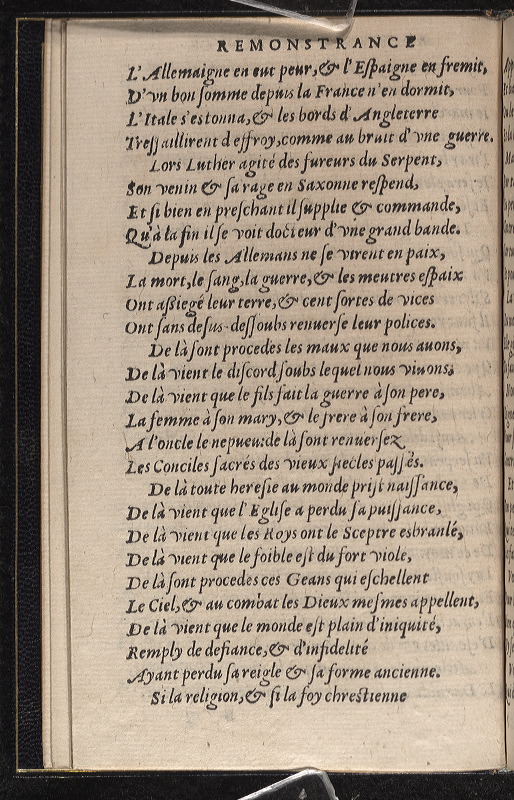 REMONSTRANCE
L'Allemaigne en eut peur, & l'Espaigne en fremit,
D'vn bon somme depuis la France n'en dormit,
L'Itale s'estonna, & les bords d'Angleterre
Tressaillirent d'effroy, comme au bruit d'vne guerre.
Lors Luther agité des fureurs du Serpent,
Son venin & sa rage en Saxonne respend,
Et si bien en preschant il supplie & commande,
Qu'à la fin il se voit docteur d'vne grand bande.
Depuis les Allemans ne se virent en paix,
La mort, le sang, la guerre, & les meutres espaix
Ont assiegé leur terre, & cent sortes de vices
Ont sans desus-dessoubs renuerse leur polices.
De là sont procedes les maux que nous auons,
De là vient le discord soubs lequel nous viuons,
De là vient que le fils fait la guerre à son pere,
La femme à son mary, & le frere à son frere,
A l'oncle le nepueu: de là sont renuersez
Les Conciles sacrés des vieux siecles passés.
De là toute heresie au monde prist naissance,
De là vient que l'Eglise a perdu sa puissance,
De là vient que les Roys ont le Sceptre esbranlé,
De là vient que le foible est du fort viole,
De là sont procedes ces Geans qui eschellent
Le Ciel, & au combat les Dieux mesmes appellent,
De là vient que le monde est plain d'iniquité,
Remply de defiance, & d'infidelité
Ayant perdu sa reigle & sa forme ancienne.
Si la religion, & si la foy chrestienne